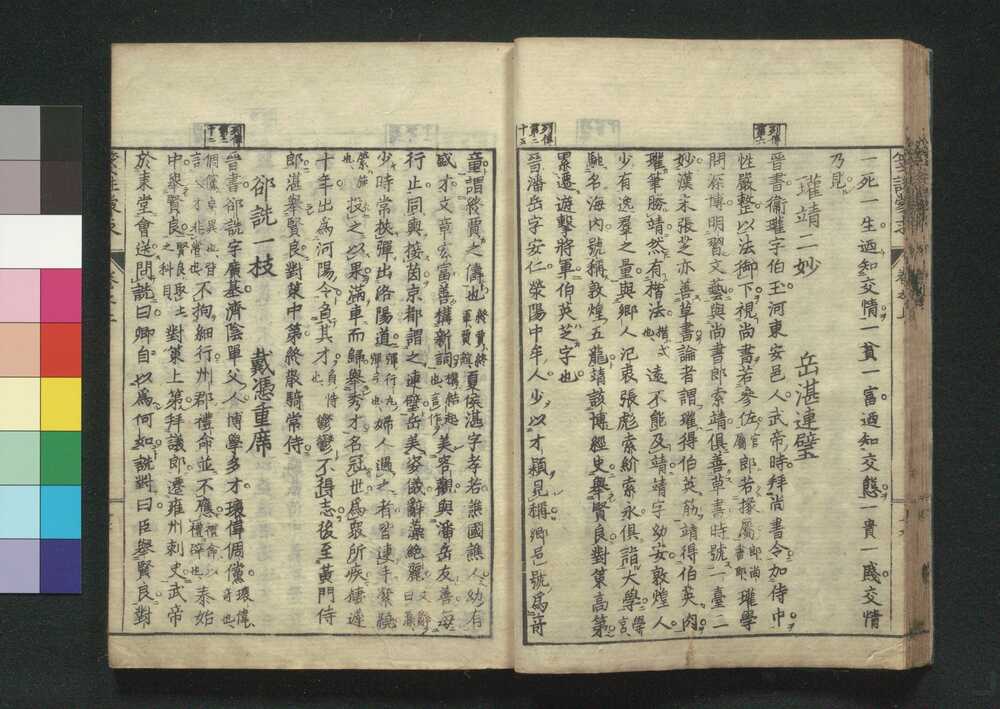 一死一生廼知交情一貧一富廼知交態一貴一賤交情
乃見
瓘靖二妙 岳湛連璧
列傳第六
晉書衞瓘字伯玉河東安邑人武帝時拜尚書令加侍中
性嚴整以法御下視尚書若參佐郎若掾屬瓘學
問深博明習文藝與尚書郎索靖俱善草書時號一臺二
妙漢末張芝亦善草書論者謂瓘得伯英筋靖得伯英肉
瓘筆勝靖然有楷法遠不能及靖靖字幼安敦煌人
少有逸羣之量與鄉人氾衷張彪索紾索永俱詣大學
馳名海内號稱敦煌五龍靖該博經史舉賢良對策高第
累遷遊擊將軍伯英芝字也
列傳第二十五
晉潘岳字安仁滎陽中牟人少以才穎見稱鄉邑號爲奇
童謂終賈之儔也夏侯湛字孝若譙國譙人幼有
盛才文章宏富善構新詞美容觀與潘岳友善每
行止同輿接茵京都謂之連璧岳美姿儀辭藻絶麗
少時常挾彈出洛陽道婦人遇之者皆連手縈繞
投之以果滿車而歸舉秀才名冠世爲衆所疾棲遲
十年出爲河陽令負其才鬱鬱不得志後至黃門侍
郎湛舉賢良對策中第終散騎常侍
郤詵一枝 戴憑重席
列傳第二十二
晉書郤詵字廣基濟陰單父人博學多才瓌偉倜儻
不拘細行州郡禮命並不應泰始
中舉賢良對策上第拜議郎遷雍州刺史武帝
於東堂會送問詵曰卿自以爲何如詵對曰臣舉賢良對